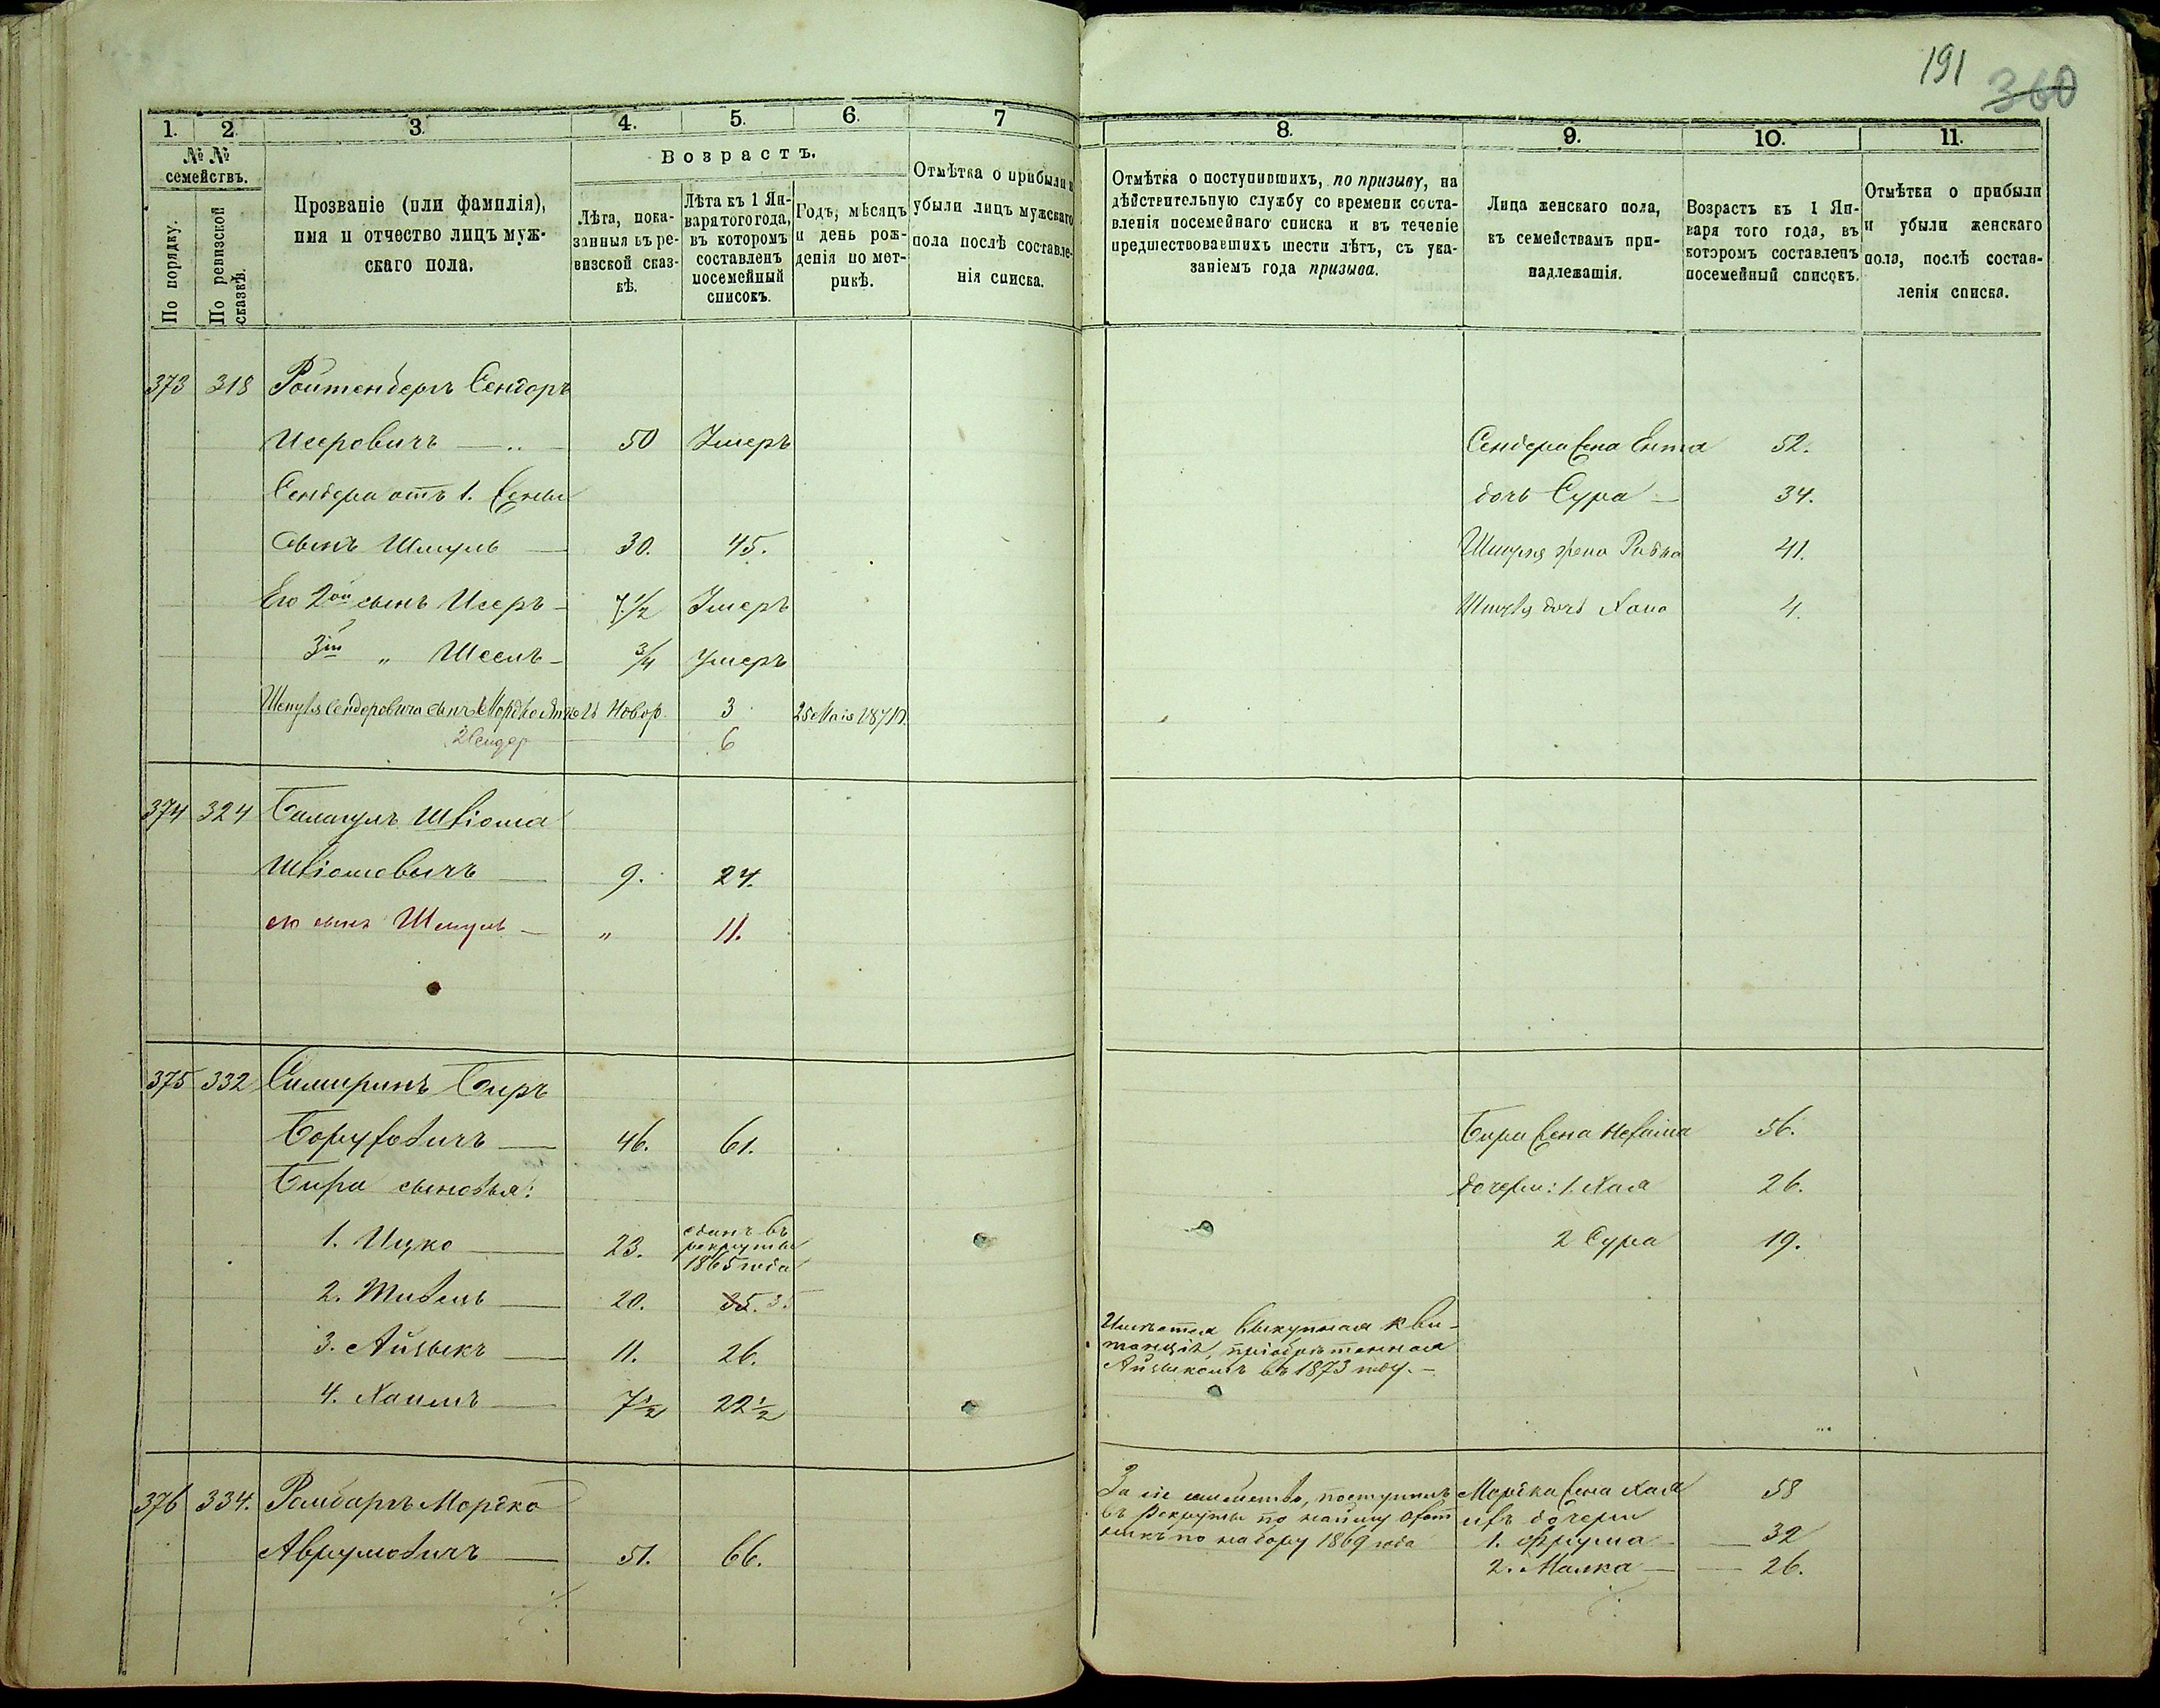 191
360
1.
2.
3.
4.
5.
6.
7
8.
9.
10.
11.
№ №
семействъ.
По порядку.
По ревизской
сказкѣ.
Прозваніе (или фамилія),
имя и отчество лицъ муж-
скаго пола.
Возрастъ.
Лѣта, пока-
занныя въ ре-
визской сказ-
кѣ.
Лѣта къ 1 Ян-
варя того года,
въ которомъ
составленъ
посемейный
списокъ.
Годъ, мѣсяцъ
и день рож-
денія по мет-
рикѣ.
Отмѣтка о прибыли и
убыли лицъ мужскаго
пола послѣ составле-
нія списка.
Отмѣтка о поступившихъ, по призыву, на
дѣйствительную службу со времени соста-
вленія посемейнаго списка и въ теченіе
предшествовавшихъ шести лѣтъ, съ ука-
заніемъ года призыва.
Лица женскаго пола,
къ семействамъ при-
надлежащія.
Возрастъ къ 1 Ян-
варя того года, въ
которомъ составленъ
посемейный списокъ.
Отмѣтки о прибыли
и убыли женскаго
пола, послѣ состав-
ленія списка.
373 318 Ройтенбергъ Сендоръ
Исеровичъ 50 Умеръ Сендера жена Ента 52.
Сендера отъ 1. жены дочь Сура 34.
Сынъ Шмуль 30. 45. Шмуля жена Ривка 41.
Его 2ой сынъ Исеръ 7 1/2 Умеръ Шмуля дочь Хана 4.
3ій " 3/4 Умеръ
Шмуля Сендоровича сынъ 1 Мордко Новор. 3 25 Мая 1871
2 Сендер 6
374 324 Балагулъ Шліома
Шліомовичъ 9. 24.
его сынъ Шмуль " 11.
375 332 Симиринъ Беръ
Боруховичъ 46. 61. Бера жена Нехама 56.
Бера сыновья: дочери: 1. Хая 26.
1. Ицко 23. сданъ въ
рекруты
1865 года
2 Сура 19.
2. 20. 35. 35
3. Айзыкъ 11. 26. Имѣется выкупная кви-
танція, пріобрѣтенная
Айзыкомъ въ 1873 году.
4. Хаимъ 7 1/2 22 1/2
376 334. Мордко
Аврумовичъ 51. 66.
За сіе семейство, поступилъ
въ рекруты по найму охот
никъ по набору 1869 года
Мордка жена Хая 58
ихъ дочери
1. Фрума 32
2. Малка 26.